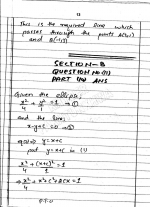 13
This is the required line which
passes through the points A(2,1)
and B(-1,1)
SECTION-B
QUESTION NO (11)
PART (a) ANS
Given the ellips:
x²/4 + y²/1 = 1 → ①
and the line:
x-y+c=0 → ②
eq(2) ⇒ y=x+c
put y=x+c in (1)
x²/4 + (x+c)²/1 = 1
⇒ x²/4 + x²+c²+2cx = 1
P.T.O